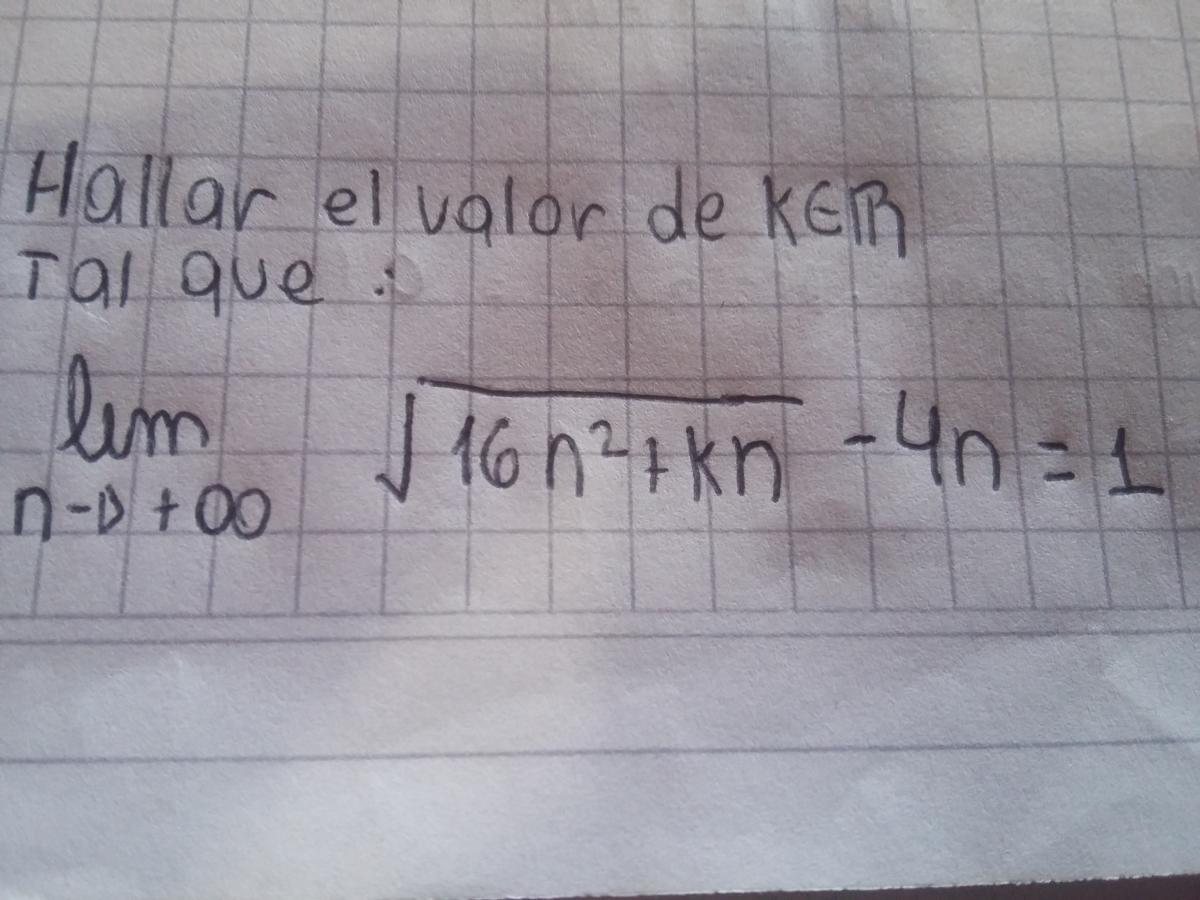 Hallar el valor de K∈ℝ
Tal que :
lim n→+∞ √(16n²+kn) - 4n = 1